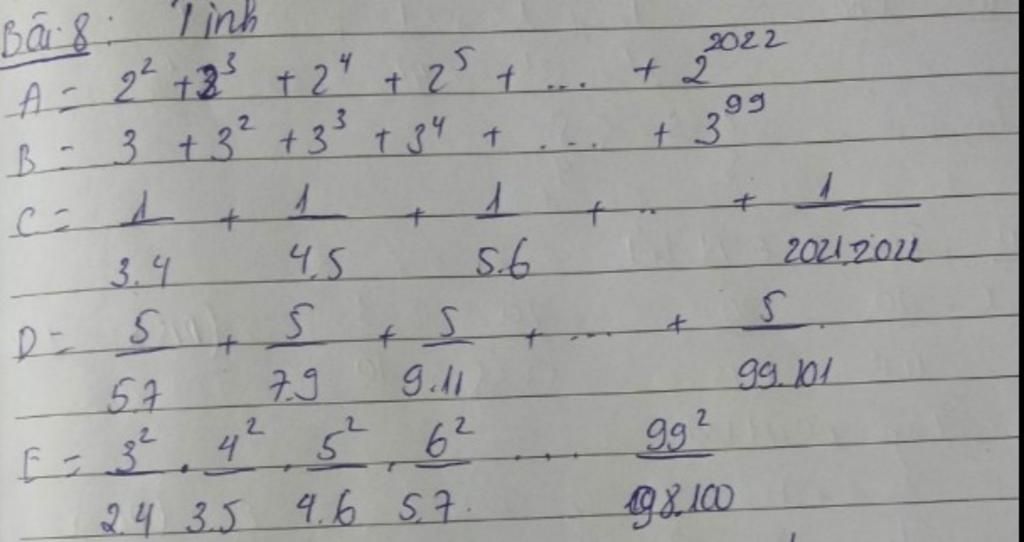 Bài 8: Tính
A = 2² + 2³ + 2⁴ + 2⁵ + ... + 2²⁰²²
B = 3 + 3² + 3³ + 3⁴ + ... + 3⁹⁹
C = 1/3.4 + 1/4.5 + 1/5.6 + .. + 1/2021.2022
D = 5/5.7 + 5/7.9 + 5/9.11 + ... + 5/99.101
E = 3²/2.4 . 4²/3.5 . 5²/4.6 . 6²/5.7 ... 99²/98.100